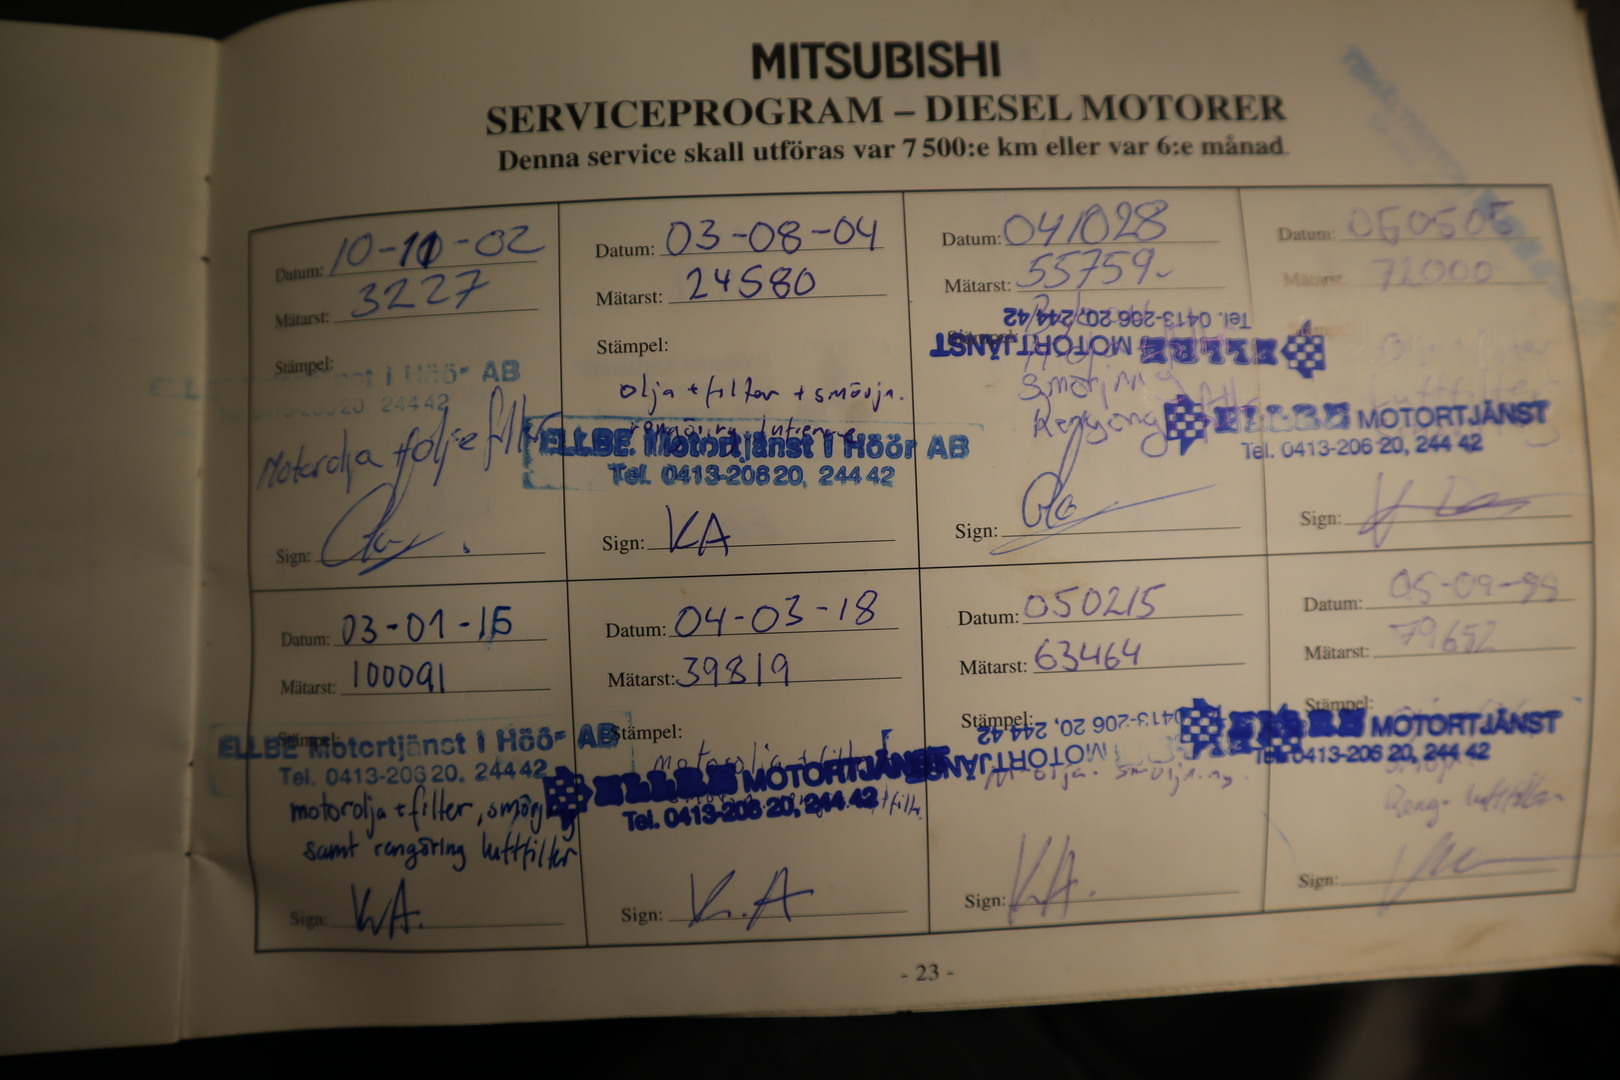 MITSUBISHI
SERVICEPROGRAM – DIESEL MOTORER
Denna service skall utföras var 7 500:e km eller var 6:e månad
Datum: 10-10-02
Mätarst: 3227
Stämpel:
i Höör AB
20. 244 42
Motorolja + oljefilter
Sign:
Datum: 03-08-04
Mätarst: 24580
Stämpel:
olja + filter + smörja.
rengöring
ELLBE Motortjänst i Höör AB
Tel. 0413-206 20, 244 42
Sign: KA
Datum: 041028
Mätarst: 55759
Tel. 0413-206 20, 244 42
ELLBE MOTORTJÄNST
Smörjning
Rengöring
Sign:
Datum: 050505
Mätarst: 72000
Stämpel:
ELLBE MOTORTJÄNST
Tel. 0413-206 20, 244 42
Sign:
Datum: 03-01-15
Mätarst: 10009
Stämpel:
ELLBE Motortjänst i Höör AB
Tel. 0413-206 20. 244 42
motorolja + filter, smörj
samt rengöring luftfilter
Sign: KA.
Datum: 04-03-18
Mätarst: 39819
Stämpel:
motorolja + filter
ELLBE MOTORTJÄNST
Tel. 0413-206 20, 244 42
Sign: K.A
Datum: 050215
Mätarst: 63464
Stämpel:
0413-206 20, 244 42
MOTORTJÄNST
olja. smörjning
Sign: KA.
Datum: 05-09-
Mätarst: 79652
Stämpel:
ELLBE MOTORTJÄNST
Tel. 0413-206 20, 244 42
Reng. luftfilter
Sign:
- 23 -